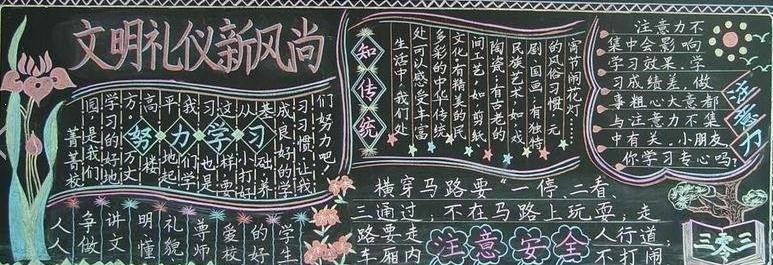 文明礼仪新风尚
菁菁校
园,是我们
学习的好地
方。万丈
高楼
平地起
我们学
习也是
这样要
从小打好
基础,养
成良好的学
习习惯,让我
们努力吧!
努力学习
人人争做讲文明懂礼貌尊师爱校的好学生
知传统
生活中,我们处
处可以感受丰富
多彩的中华传统
文化:有精美的民
间工艺,如剪纸
陶瓷;有古老的
民族艺术,如戏
剧、国画;有独特
的风俗习惯,元
宵节闹花灯……
注意力不
集中会影响
学习效果,学
习成绩差,做
事粗心大意都
与注意力不集
中有关,小朋友,
你学习专心吗?
注意力
横穿马路要“一停、二看、
三通过,不在马路上玩耍;走
路要走人行道;
车厢内不打闹
注意安全
三零三